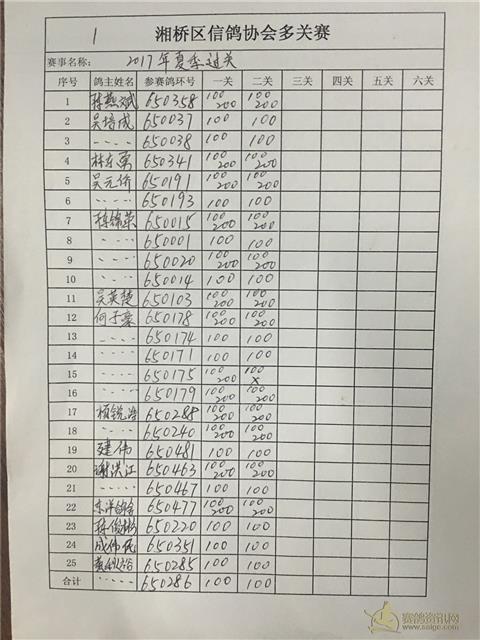 1
湘桥区信鸽协会多关赛
赛事名称: 2017年夏季过关
序号 鸽主姓名 参赛鸽环号 一关 二关 三关 四关 五关 六关
1 陈燕斌 650358 100 200 100 200
2 吴培成 650037 100 100
3 〃 650038 100 100
4 林东勇 650341 100 200 100 200
5 吴元侨 650191 100 200 100 200
6 〃 650193 100 100
7 陈锦荣 650015 100 200 100 200
8 〃 650001 100 100
9 〃 650020 100 200 100 200
10 〃 650014 100 100
11 吴英楚 650103 100 200 100 200
12 何子豪 650178 100 200 100 200
13 〃 650174 100 100
14 〃 650171 100 100
15 〃 650175 100 200 100 X
16 〃 650179 100 200 100 200
17 650288 100 200 100 200
18 〃 650240 100 200 100 200
19 建伟 650481 100 100
20 谢洪江 650463 100 200 100 200
21 〃 650467 100 100
22 650477 100 200 100 200
23 陈俊彬 650220 100 100
24 成伟民 650351 100 100
25 650285 100 100
合计 〃 650286 100 100
赛鸽资讯网
www.saige.com